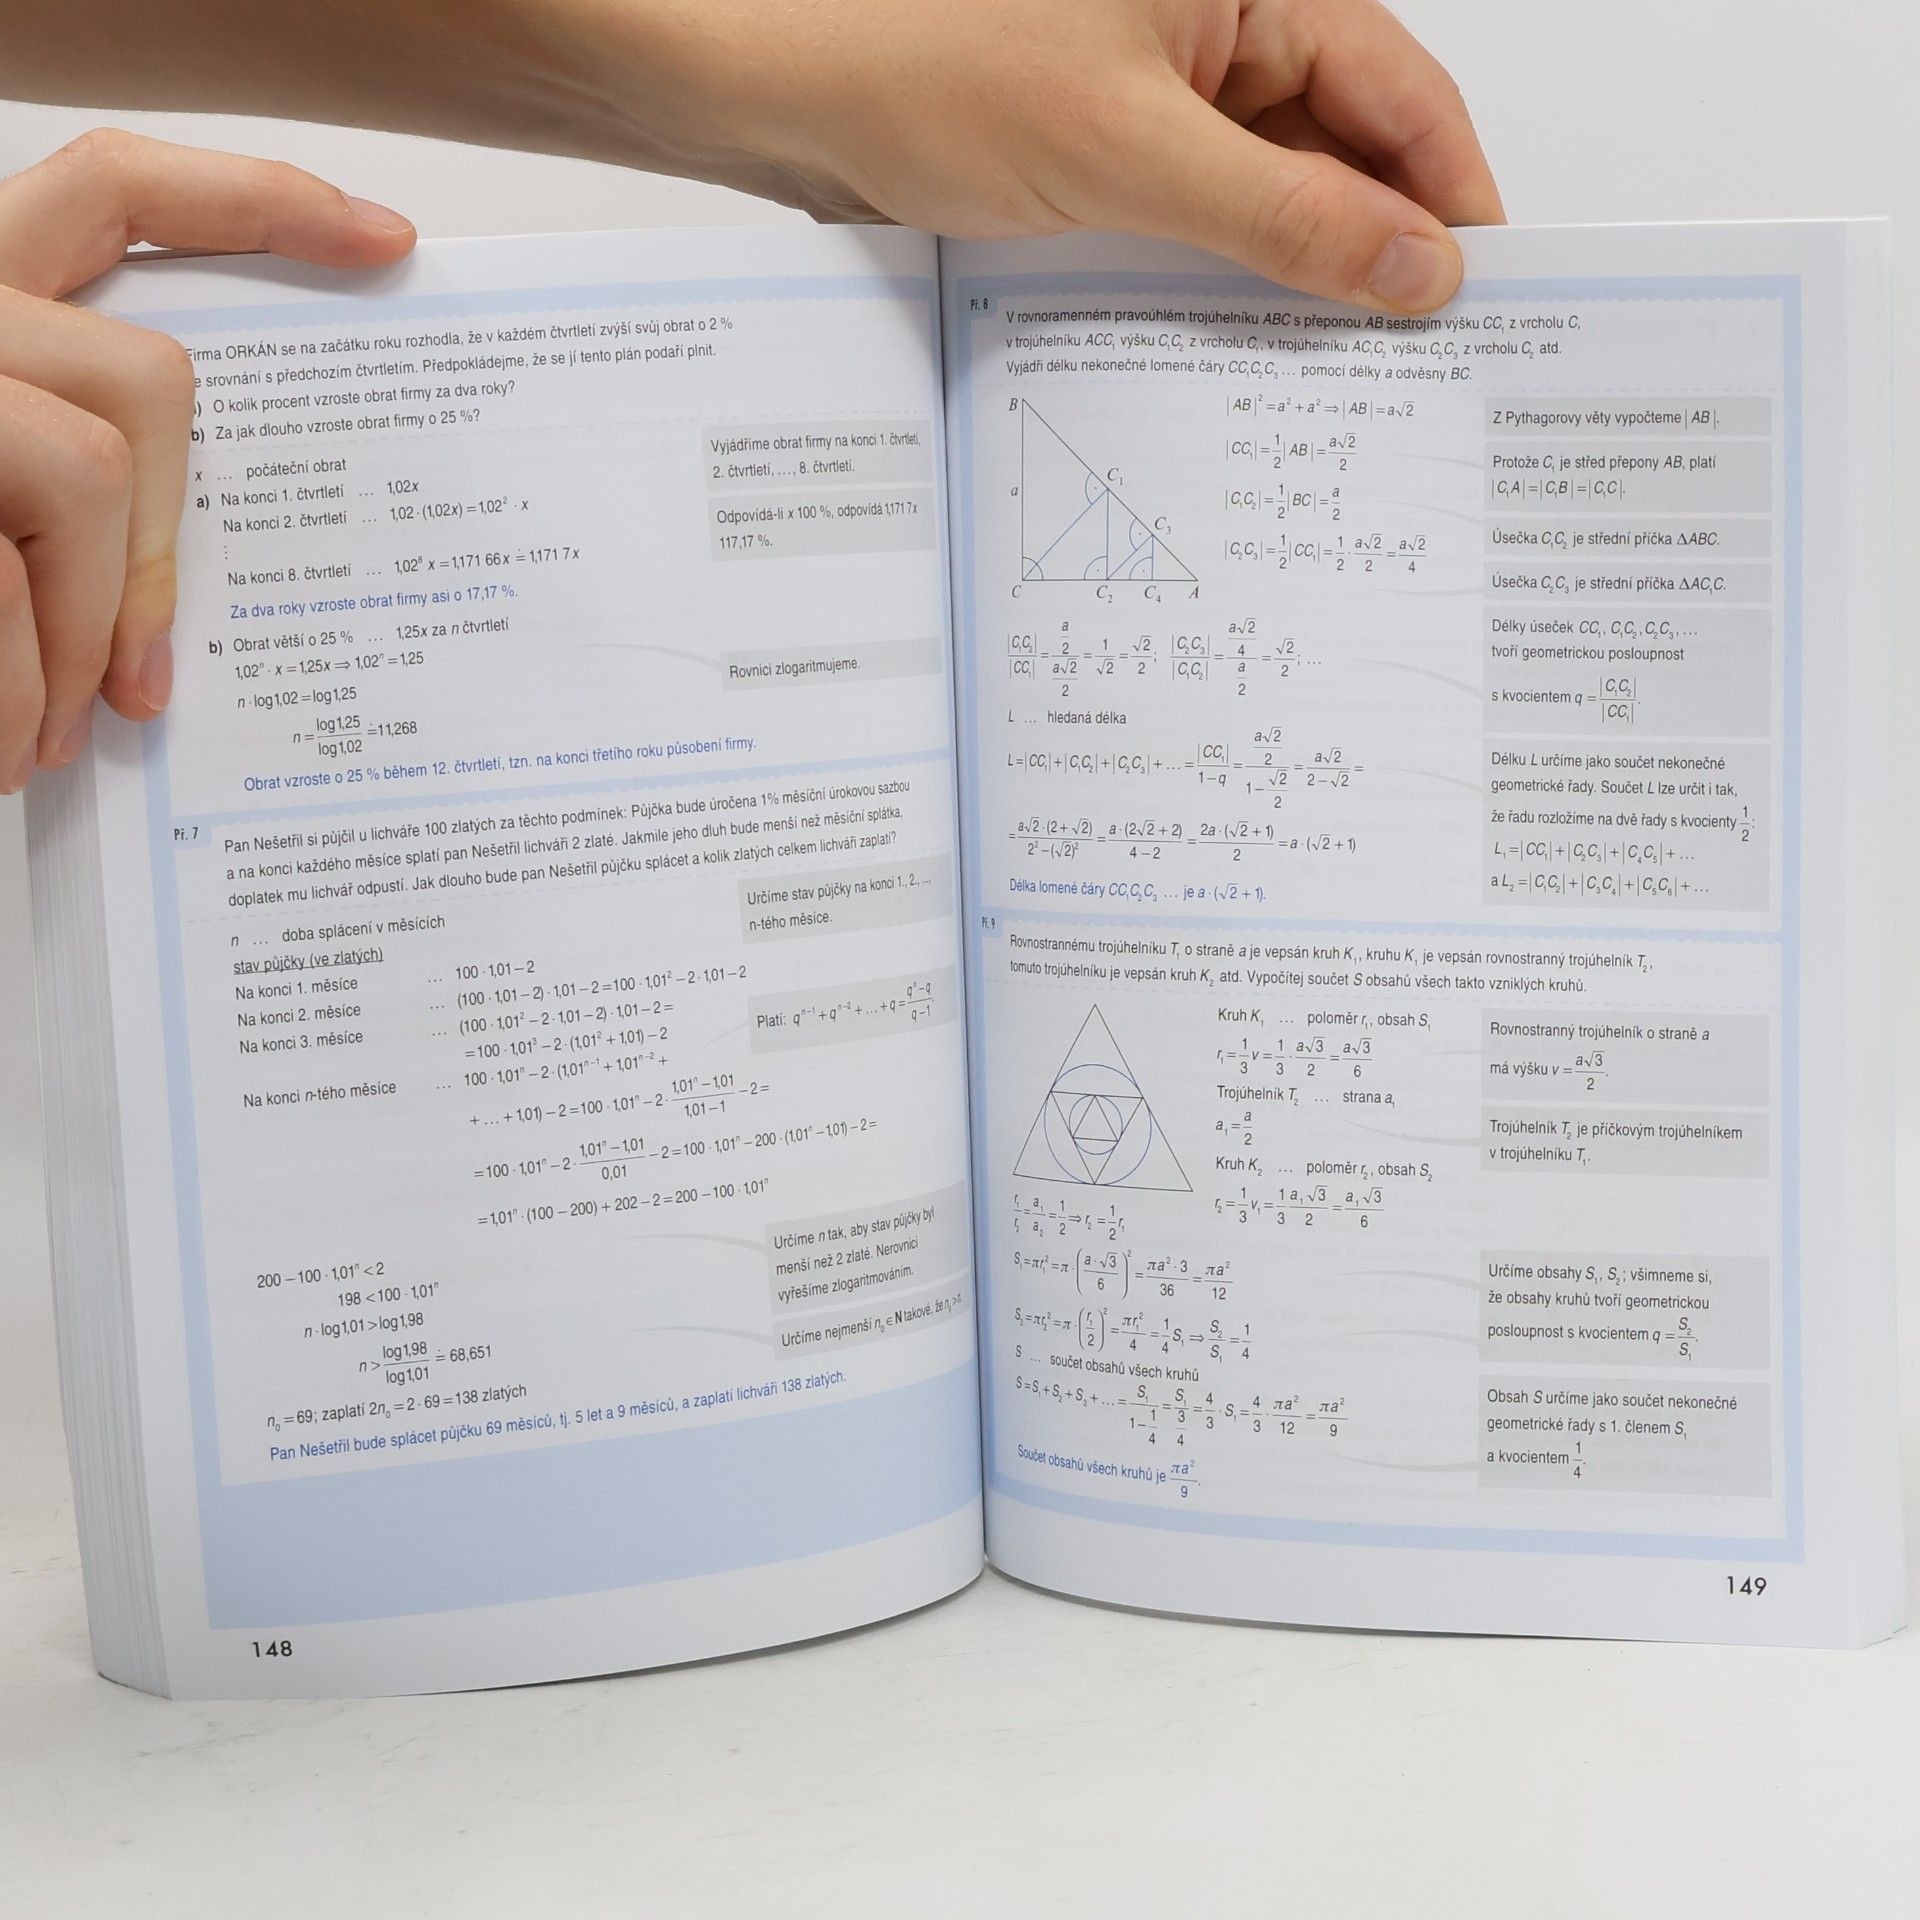 Firma ORKÁN se na začátku roku rozhodla, že v každém čtvrtletí zvýší svůj obrat o 2 %
e srovnání s předchozím čtvrtletím. Předpokládejme, že se jí tento plán podaří plnit.
) O kolik procent vzroste obrat firmy za dva roky?
b) Za jak dlouho vzroste obrat firmy o 25 %?
x … počáteční obrat
a) Na konci 1. čtvrtletí … 1,02x
Na konci 2. čtvrtletí … 1,02·(1,02x) = 1,02² · x
⋮
Na konci 8. čtvrtletí … 1,02⁸ x = 1,171 66x ≐ 1,171 7x
Za dva roky vzroste obrat firmy asi o 17,17 %.
Vyjádříme obrat firmy na konci 1. čtvrtletí,
2. čtvrtletí, …, 8. čtvrtletí.
Odpovídá-li x 100 %, odpovídá 1,171 7x
117,17 %.
b) Obrat větší o 25 % … 1,25x za n čtvrtletí
1,02ⁿ · x = 1,25x ⇒ 1,02ⁿ = 1,25
n · log 1,02 = log 1,25
n = log 1,25 / log 1,02 ≐ 11,268
Rovnici zlogaritmujeme.
Obrat vzroste o 25 % během 12. čtvrtletí, tzn. na konci třetího roku působení firmy.
Př. 7
Pan Nešetřil si půjčil u lichváře 100 zlatých za těchto podmínek: Půjčka bude úročena 1% měsíční úrokovou sazbou
a na konci každého měsíce splatí pan Nešetřil lichváři 2 zlaté. Jakmile jeho dluh bude menší než měsíční splátka,
doplatek mu lichvář odpustí. Jak dlouho bude pan Nešetřil půjčku splácet a kolik zlatých celkem lichváři zaplatí?
n … doba splácení v měsících
stav půjčky (ve zlatých)
Na konci 1. měsíce … 100 · 1,01 − 2
Na konci 2. měsíce … (100 · 1,01 − 2) · 1,01 − 2 = 100 · 1,01² − 2 · 1,01 − 2
Na konci 3. měsíce … (100 · 1,01² − 2 · 1,01 − 2) · 1,01 − 2 =
= 100 · 1,01³ − 2 · (1,01² + 1,01) − 2
Na konci n-tého měsíce … 100 · 1,01ⁿ − 2 · (1,01ⁿ⁻¹ + 1,01ⁿ⁻² +
+ … + 1,01) − 2 = 100 · 1,01ⁿ − 2 · (1,01ⁿ − 1,01)/(1,01 − 1) − 2 =
= 100 · 1,01ⁿ − 2 · (1,01ⁿ − 1,01)/0,01 − 2 = 100 · 1,01ⁿ − 200 · (1,01ⁿ − 1,01) − 2 =
= 1,01ⁿ · (100 − 200) + 202 − 2 = 200 − 100 · 1,01ⁿ
Určíme stav půjčky na konci 1., 2., …,
n-tého měsíce.
Platí: qⁿ⁻¹ + qⁿ⁻² + … + q = (qⁿ − q)/(q − 1).
200 − 100 · 1,01ⁿ < 2
198 < 100 · 1,01ⁿ
n · log 1,01 > log 1,98
n > log 1,98 / log 1,01 ≐ 68,651
n₀ = 69; zaplatí 2n₀ = 2 · 69 = 138 zlatých
Určíme n tak, aby stav půjčky byl
menší než 2 zlaté. Nerovnici
vyřešíme zlogaritmováním.
Určíme nejmenší n₀ ∈ N takové, že n₀ > n.
Pan Nešetřil bude splácet půjčku 69 měsíců, tj. 5 let a 9 měsíců, a zaplatí lichváři 138 zlatých.
148
Př. 8
V rovnoramenném pravoúhlém trojúhelníku ABC s přeponou AB sestrojím výšku CC₁ z vrcholu C,
v trojúhelníku ACC₁ výšku C₁C₂ z vrcholu C₁, v trojúhelníku AC₁C₂ výšku C₂C₃ z vrcholu C₂ atd.
Vyjádři délku nekonečné lomené čáry CC₁C₂C₃ … pomocí délky a odvěsny BC.
B
a
C₁
C₃
C C₂ C₄ A
|AB|² = a² + a² ⇒ |AB| = a√2
|CC₁| = 1/2 |AB| = a√2/2
|C₁C₂| = 1/2 |BC| = a/2
|C₂C₃| = 1/2 |CC₁| = 1/2 · a√2/2 = a√2/4
Z Pythagorovy věty vypočteme |AB|.
Protože C₁ je střed přepony AB, platí
|C₁A| = |C₁B| = |C₁C|.
Úsečka C₁C₂ je střední příčka ΔABC.
Úsečka C₂C₃ je střední příčka ΔAC₁C.
|C₁C₂|/|CC₁| = (a/2)/(a√2/2) = 1/√2 = √2/2; |C₂C₃|/|C₁C₂| = (a√2/4)/(a/2) = √2/2; …
Délky úseček CC₁, C₁C₂, C₂C₃, …
tvoří geometrickou posloupnost
s kvocientem q = |C₁C₂|/|CC₁|.
L … hledaná délka
L = |CC₁| + |C₁C₂| + |C₂C₃| + … = |CC₁|/(1 − q) = (a√2/2)/(1 − √2/2) = a√2/(2 − √2) =
= a√2 · (2 + √2)/(2² − (√2)²) = a · (2√2 + 2)/(4 − 2) = 2a · (√2 + 1)/2 = a · (√2 + 1)
Délka lomené čáry CC₁C₂C₃ … je a · (√2 + 1).
Délku L určíme jako součet nekonečné
geometrické řady. Součet L lze určit i tak,
že řadu rozložíme na dvě řady s kvocienty 1/2:
L₁ = |CC₁| + |C₂C₃| + |C₄C₅| + …
a L₂ = |C₁C₂| + |C₃C₄| + |C₅C₆| + …
Př. 9
Rovnostrannému trojúhelníku T₁ o straně a je vepsán kruh K₁, kruhu K₁ je vepsán rovnostranný trojúhelník T₂,
tomuto trojúhelníku je vepsán kruh K₂ atd. Vypočítej součet S obsahů všech takto vzniklých kruhů.
Kruh K₁ … poloměr r₁, obsah S₁
r₁ = 1/3 v = 1/3 · a√3/2 = a√3/6
Trojúhelník T₂ … strana a₁
a₁ = a/2
Kruh K₂ … poloměr r₂, obsah S₂
r₂ = 1/3 v₁ = 1/3 a₁√3/2 = a₁√3/6
Rovnostranný trojúhelník o straně a
má výšku v = a√3/2.
Trojúhelník T₂ je příčkovým trojúhelníkem
v trojúhelníku T₁.
r₁/r₂ = a₁/a₂ = 1/2 ⇒ r₂ = 1/2 r₁
S₁ = πr₁² = π · (a · √3/6)² = πa² · 3/36 = πa²/12
S₂ = πr₂² = π · (r₁/2)² = πr₁²/4 = 1/4 S₁ ⇒ S₂/S₁ = 1/4
S … součet obsahů všech kruhů
S = S₁ + S₂ + S₃ + … = S₁/(1 − 1/4) = S₁/(3/4) = 4/3 · S₁ = 4/3 · πa²/12 = πa²/9
Součet obsahů všech kruhů je πa²/9.
Určíme obsahy S₁, S₂; všimneme si,
že obsahy kruhů tvoří geometrickou
posloupnost s kvocientem q = S₂/S₁.
Obsah S určíme jako součet nekonečné
geometrické řady s 1. členem S₁
a kvocientem 1/4.
149